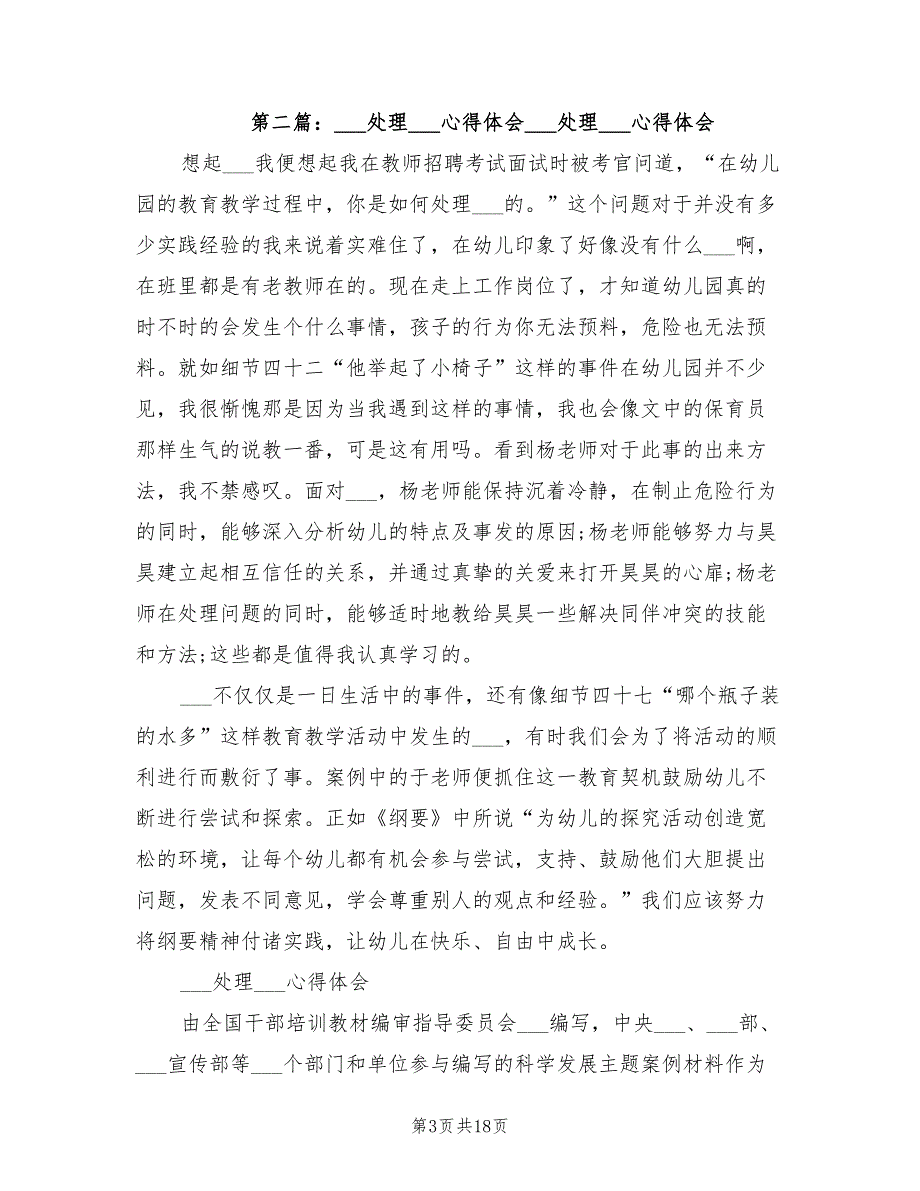 第二篇：___处理___心得体会___处理___心得体会
想起___我便想起我在教师招聘考试面试时被考官问道，“在幼儿
园的教育教学过程中，你是如何处理___的。”这个问题对于并没有多
少实践经验的我来说着实难住了，在幼儿印象了好像没有什么___啊，
在班里都是有老教师在的。现在走上工作岗位了，才知道幼儿园真的
时不时的会发生个什么事情，孩子的行为你无法预料，危险也无法预
料。就如细节四十二“他举起了小椅子”这样的事件在幼儿园并不少
见，我很惭愧那是因为当我遇到这样的事情，我也会像文中的保育员
那样生气的说教一番，可是这有用吗。看到杨老师对于此事的出来方
法，我不禁感叹。面对___，杨老师能保持沉着冷静，在制止危险行为
的同时，能够深入分析幼儿的特点及事发的原因;杨老师能够努力与昊
昊建立起相互信任的关系，并通过真挚的关爱来打开昊昊的心扉;杨老
师在处理问题的同时，能够适时地教给昊昊一些解决同伴冲突的技能
和方法;这些都是值得我认真学习的。
___不仅仅是一日生活中的事件，还有像细节四十七“哪个瓶子装
的水多”这样教育教学活动中发生的___，有时我们会为了将活动的顺
利进行而敷衍了事。案例中的于老师便抓住这一教育契机鼓励幼儿不
断进行尝试和探索。正如《纲要》中所说“为幼儿的探究活动创造宽
松的环境，让每个幼儿都有机会参与尝试，支持、鼓励他们大胆提出
问题，发表不同意见，学会尊重别人的观点和经验。”我们应该努力
将纲要精神付诸实践，让幼儿在快乐、自由中成长。
___处理___心得体会
由全国干部培训教材编审指导委员会___编写，中央___、___部、
___宣传部等___个部门和单位参与编写的科学发展主题案例材料作为
第3页共18页